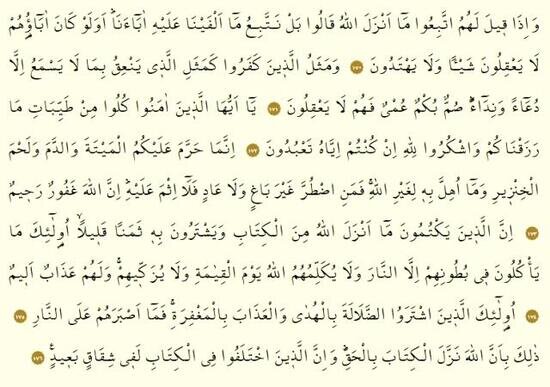 وَاِذَا قٖيلَ لَهُمُ اتَّبِعُوا مَٓا اَنْزَلَ اللّٰهُ قَالُوا بَلْ نَتَّبِعُ مَٓا اَلْفَيْنَا عَلَيْهِ اٰبَٓاءَنَاؕ اَوَلَوْ كَانَ اٰبَٓاؤُ۬هُمْ
لَا يَعْقِلُونَ شَيْـٔاً وَلَا يَهْتَدُونَ ﴿١٧٠﴾ وَمَثَلُ الَّذٖينَ كَفَرُوا كَمَثَلِ الَّذٖي يَنْعِقُ بِمَا لَا يَسْمَعُ اِلَّا
دُعَٓاءً وَنِدَٓاءًؕ صُمٌّ بُكْمٌ عُمْيٌ فَهُمْ لَا يَعْقِلُونَ ﴿١٧١﴾ يَٓا اَيُّهَا الَّذٖينَ اٰمَنُوا كُلُوا مِنْ طَيِّبَاتِ مَا
رَزَقْنَاكُمْ وَاشْكُرُوا لِلّٰهِ اِنْ كُنْتُمْ اِيَّاهُ تَعْبُدُونَ ﴿١٧٢﴾ اِنَّمَا حَرَّمَ عَلَيْكُمُ الْمَيْتَةَ وَالدَّمَ وَلَحْمَ
الْخِنْزٖيرِ وَمَٓا اُهِلَّ بِهٖ لِغَيْرِ اللّٰهِۚ فَمَنِ اضْطُرَّ غَيْرَ بَاغٍ وَلَا عَادٍ فَلَٓا اِثْمَ عَلَيْهِؕ اِنَّ اللّٰهَ غَفُورٌ رَحٖيمٌ
﴿١٧٣﴾ اِنَّ الَّذٖينَ يَكْتُمُونَ مَٓا اَنْزَلَ اللّٰهُ مِنَ الْكِتَابِ وَيَشْتَرُونَ بِهٖ ثَمَناً قَلٖيلاًۙ اُو۬لٰٓئِكَ مَا
يَأْكُلُونَ فٖي بُطُونِهِمْ اِلَّا النَّارَ وَلَا يُكَلِّمُهُمُ اللّٰهُ يَوْمَ الْقِيٰمَةِ وَلَا يُزَكّٖيهِمْۚ وَلَهُمْ عَذَابٌ اَلٖيمٌ
﴿١٧٤﴾ اُو۬لٰٓئِكَ الَّذٖينَ اشْتَرَوُا الضَّلَالَةَ بِالْهُدٰى وَالْعَذَابَ بِالْمَغْفِرَةِۚ فَمَٓا اَصْبَرَهُمْ عَلَى النَّارِ ﴿١٧٥﴾
ذٰلِكَ بِاَنَّ اللّٰهَ نَزَّلَ الْكِتَابَ بِالْحَقِّؕ وَاِنَّ الَّذٖينَ اخْتَلَفُوا فِي الْكِتَابِ لَفٖي شِقَاقٍ بَعٖيدٍ۟ ﴿١٧٦﴾